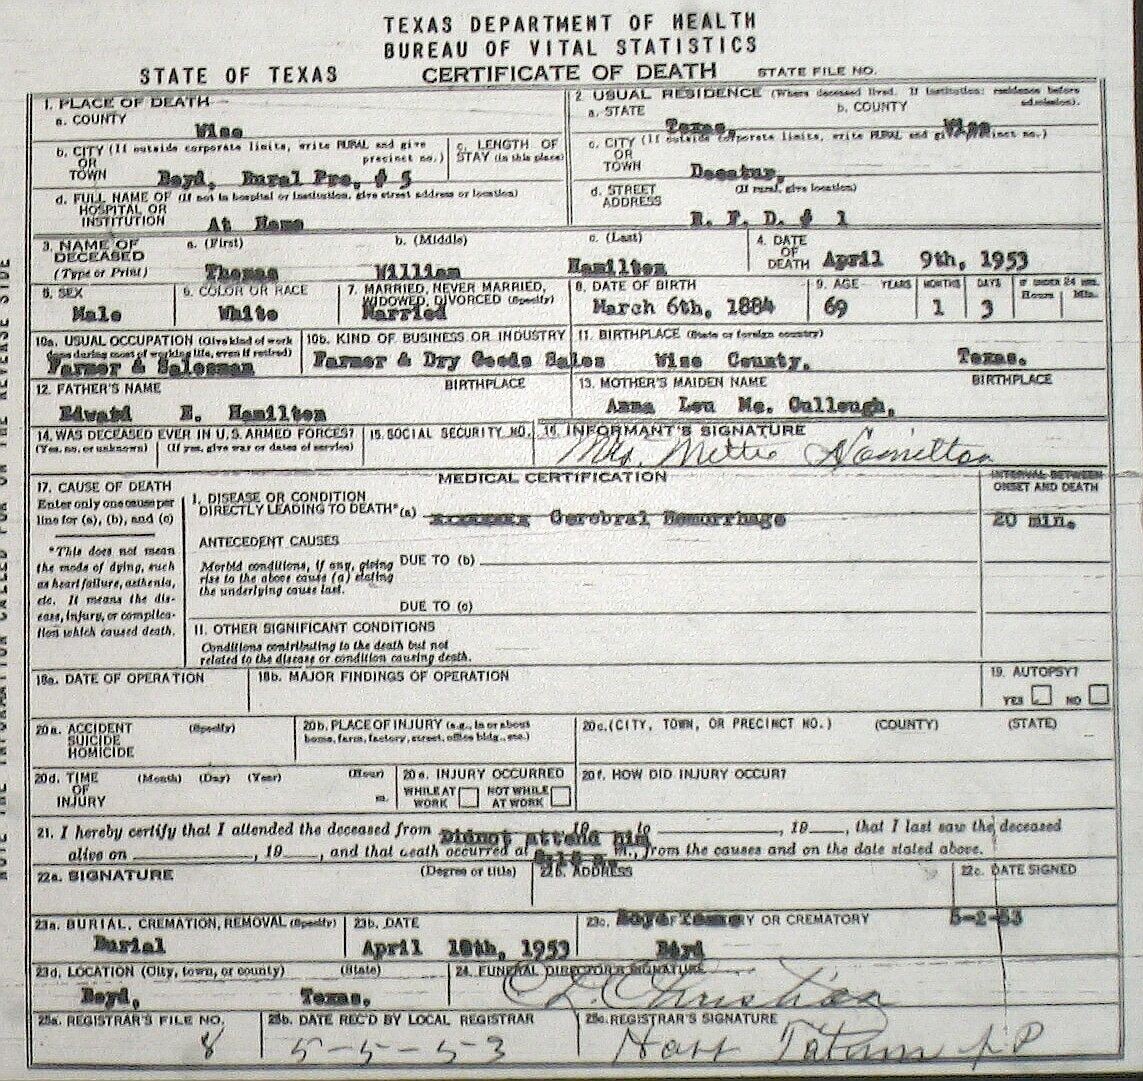 TEXAS DEPARTMENT OF HEALTH
BUREAU OF VITAL STATISTICS
STATE OF TEXAS CERTIFICATE OF DEATH STATE FILE NO.
1. PLACE OF DEATH
a. COUNTY
Wise
2. USUAL RESIDENCE (Where deceased lived. If institution: residence before admission).
a. STATE b. COUNTY
Texas, Wise
b. CITY (If outside corporate limits, write RURAL and give
OR precinct no.)
TOWN Boyd, Rural Pre, # 5
c. LENGTH OF
STAY (in this place)
c. CITY (If outside corporate limits, write RURAL and give precinct no.)
OR
TOWN Decatur,
d. FULL NAME OF (If not in hospital or institution, give street address or location)
HOSPITAL OR
INSTITUTION At Home
d. STREET (If rural, give location)
ADDRESS
R. F. D. # 1
3. NAME OF a. (First) b. (Middle) c. (Last)
DECEASED
(Type or Print) Thomas William Hamilton
4. DATE
OF
DEATH April 9th, 1953
5. SEX
Male
6. COLOR OR RACE
White
7. MARRIED, NEVER MARRIED,
WIDOWED, DIVORCED (Specify)
Married
8. DATE OF BIRTH
March 6th, 1884
9. AGE YEARS MONTHS DAYS IF UNDER 24 HRS.
Hours Min.
69 1 3
10a. USUAL OCCUPATION (Give kind of work
done during most of working life, even if retired)
Farmer & Salesman
10b. KIND OF BUSINESS OR INDUSTRY
Farmer & Dry Goods Sales
11. BIRTHPLACE (State or foreign country)
Wise County, Texas.
12. FATHER'S NAME BIRTHPLACE
Edward E. Hamilton
13. MOTHER'S MAIDEN NAME BIRTHPLACE
Anna Lou Mc. Cullough,
14. WAS DECEASED EVER IN U.S. ARMED FORCES?
(Yes, no, or unknown) (If yes, give war or dates of service)
15. SOCIAL SECURITY NO.
16. INFORMANT'S SIGNATURE
Mrs. Mettie Hamilton
MEDICAL CERTIFICATION
INTERVAL BETWEEN
ONSET AND DEATH
17. CAUSE OF DEATH
Enter only one cause per
line for (a), (b), and (c)
*This does not mean
the mode of dying, such
as heart failure, asthenia,
etc. It means the dis-
ease, injury, or complica-
tion which caused death.
I. DISEASE OR CONDITION
DIRECTLY LEADING TO DEATH* (a) xxxxxxxx Cerebral Hemorrhage
20 min.
ANTECEDENT CAUSES
Morbid conditions, if any, giving
rise to the above cause (a) stating
the underlying cause last.
DUE TO (b)
DUE TO (c)
II. OTHER SIGNIFICANT CONDITIONS
Conditions contributing to the death but not
related to the disease or condition causing death.
18a. DATE OF OPERATION
18b. MAJOR FINDINGS OF OPERATION
19. AUTOPSY?
YES NO
20a. ACCIDENT (Specify)
SUICIDE
HOMICIDE
20b. PLACE OF INJURY (e.g., in or about
home, farm, factory, street, office bldg., etc.)
20c. (CITY, TOWN, OR PRECINCT NO.) (COUNTY) (STATE)
20d. TIME (Month) (Day) (Year) (Hour)
OF
INJURY m.
20e. INJURY OCCURRED
WHILE AT WORK NOT WHILE AT WORK
20f. HOW DID INJURY OCCUR?
21. I hereby certify that I attended the deceased from Didnot attend him 19 to , 19 , that I last saw the deceased
alive on , 19 , and that death occurred at m., from the causes and on the date stated above.
22a. SIGNATURE (Degree or title)
22b. ADDRESS
22c. DATE SIGNED
5-2-53
23a. BURIAL, CREMATION, REMOVAL (Specify)
Burial
23b. DATE
April 10th, 1953
23c. OR CREMATORY
Boyd Texas
Boyd
23d. LOCATION (City, town, or county) (State)
Boyd, Texas.
24. FUNERAL DIRECTOR'S SIGNATURE
Christian
25a. REGISTRAR'S FILE NO.
8
25b. DATE REC'D BY LOCAL REGISTRAR
5-5-53
25c. REGISTRAR'S SIGNATURE
Tatum J P